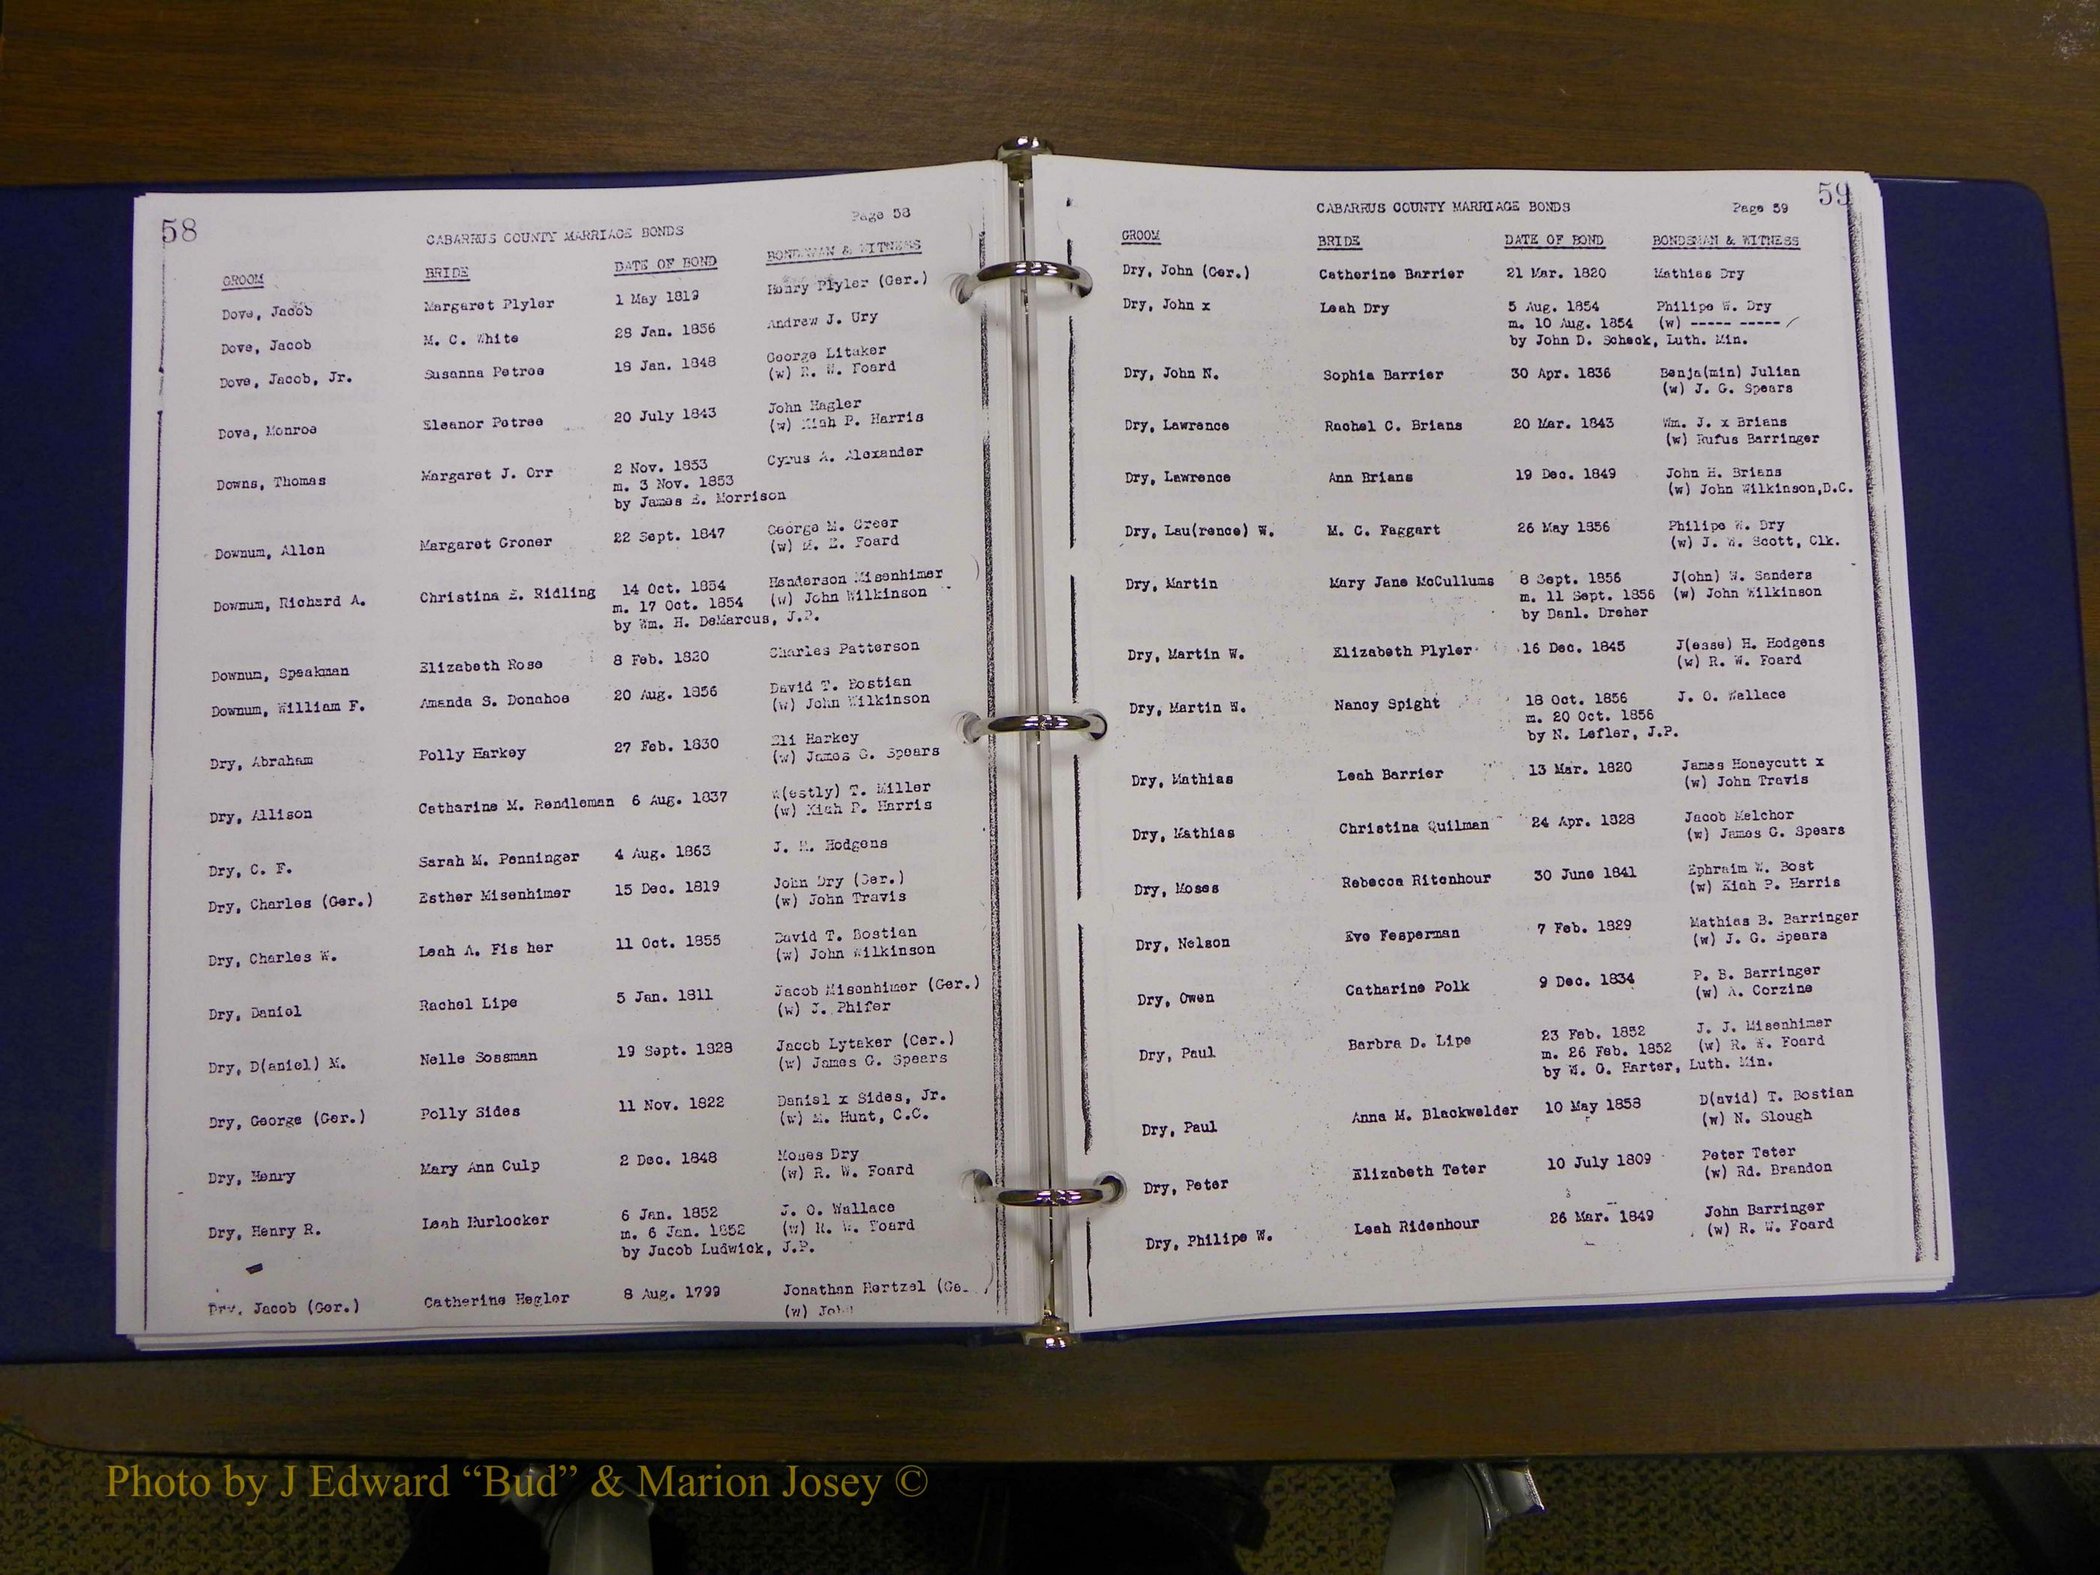 58
Page 58
CABARRUS COUNTY MARRIAGE BONDS
GROOM BRIDE DATE OF BOND BONDSMAN & WITNESS
Dove, Jacob Margaret Plyler 1 May 1819 Henry Plyler (Ger.)
Dove, Jacob M. C. White 28 Jan. 1856 Andrew J. Ury
Dove, Jacob, Jr. Susanna Petree 18 Jan. 1848 George Litaker
(w) R. W. Foard
Dove, Monroe Eleanor Petree 20 July 1843 John Hagler
(w) Kiah P. Harris
Downs, Thomas Margaret J. Orr 2 Nov. 1853 Cyrus A. Alexander
m. 3 Nov. 1853
by James E. Morrison
Downum, Allen Margaret Groner 22 Sept. 1847 George M. Greer
(w) M. E. Foard
Downum, Richard A. Christina E. Ridling 14 Oct. 1854 Henderson Misenhimer
m. 17 Oct. 1854 (w) John Wilkinson
by Wm. H. DeMarcus, J.P.
Downum, Speakman Elizabeth Rose 8 Feb. 1820 Charles Patterson
Downum, William F. Amanda S. Donahoe 20 Aug. 1856 David T. Bostian
(w) John Wilkinson
Dry, Abraham Polly Harkey 27 Feb. 1830 Eli Harkey
(w) James G. Spears
Dry, Allison Catharine M. Rendleman 6 Aug. 1837 W(estly) T. Miller
(w) Kiah P. Harris
Dry, C. F. Sarah M. Penninger 4 Aug. 1863 J. H. Hodgens
Dry, Charles (Ger.) Esther Misenhimer 15 Dec. 1819 John Dry (Ger.)
(w) John Travis
Dry, Charles W. Leah A. Fis her 11 Oct. 1855 David T. Bostian
(w) John Wilkinson
Dry, Daniel Rachel Lipe 5 Jan. 1811 Jacob Misenhimer (Ger.)
(w) J. Phifer
Dry, D(aniel) M. Nelle Sossman 19 Sept. 1828 Jacob Lytaker (Ger.)
(w) James G. Spears
Dry, George (Ger.) Polly Sides 11 Nov. 1822 Daniel x Sides, Jr.
(w) M. Hunt, C.C.
Dry, Henry Mary Ann Culp 2 Dec. 1848 Moses Dry
(w) R. W. Foard
Dry, Henry R. Leah Hurlocker 6 Jan. 1852 J. O. Wallace
m. 6 Jan. 1852 (w) R. W. Foard
by Jacob Ludwick, J.P.
Dry, Jacob (Ger.) Catherine Hegler 8 Aug. 1799 Jonathan Hartzel (Ge.
(w) John
59
CABARRUS COUNTY MARRIAGE BONDS Page 59
GROOM BRIDE DATE OF BOND BONDSMAN & WITNESS
Dry, John (Ger.) Catherine Barrier 21 Mar. 1820 Mathias Dry
Dry, John x Leah Dry 5 Aug. 1854 Philipe W. Dry
m. 10 Aug. 1854 (w) ----- -----
by John D. Scheck, Luth. Min.
Dry, John N. Sophia Barrier 30 Apr. 1836 Benja(min) Julian
(w) J. G. Spears
Dry, Lawrence Rachel C. Brians 20 Mar. 1843 Wm. J. x Brians
(w) Rufus Barringer
Dry, Lawrence Ann Brians 19 Dec. 1849 John H. Brians
(w) John Wilkinson,D.C.
Dry, Lau(rence) W. M. C. Faggart 26 May 1856 Philipe W. Dry
(w) J. W. Scott, Clk.
Dry, Martin Mary Jane McCullums 8 Sept. 1856 J(ohn) W. Sanders
m. 11 Sept. 1856 (w) John Wilkinson
by Danl. Dreher
Dry, Martin W. Elizabeth Plyler 16 Dec. 1845 J(esse) H. Hodgens
(w) R. W. Foard
Dry, Martin W. Nancy Spight 18 Oct. 1856 J. O. Wallace
m. 20 Oct. 1856
by N. Lefler, J.P.
Dry, Mathias Leah Barrier 13 Mar. 1820 James Honeycutt x
(w) John Travis
Dry, Mathias Christina Quilman 24 Apr. 1828 Jacob Melchor
(w) James G. Spears
Dry, Moses Rebecca Ritenhour 30 June 1841 Ephraim W. Bost
(w) Kiah P. Harris
Dry, Nelson Eve Fesperman 7 Feb. 1829 Mathias B. Barringer
(w) J. G. Spears
Dry, Owen Catharine Polk 9 Dec. 1834 P. B. Barringer
(w) A. Corzine
Dry, Paul Barbra D. Lipe 23 Feb. 1852 J. J. Misenhimer
m. 26 Feb. 1852 (w) R. W. Foard
by W. G. Harter, Luth. Min.
Dry, Paul Anna M. Blackwelder 10 May 1858 D(avid) T. Bostian
(w) N. Slough
Dry, Peter Elizabeth Teter 10 July 1809 Peter Teter
(w) Rd. Brandon
Dry, Philipe W. Leah Ridenhour 26 Mar. 1849 John Barringer
(w) R. W. Foard
Photo by J Edward “Bud” & Marion Josey ©